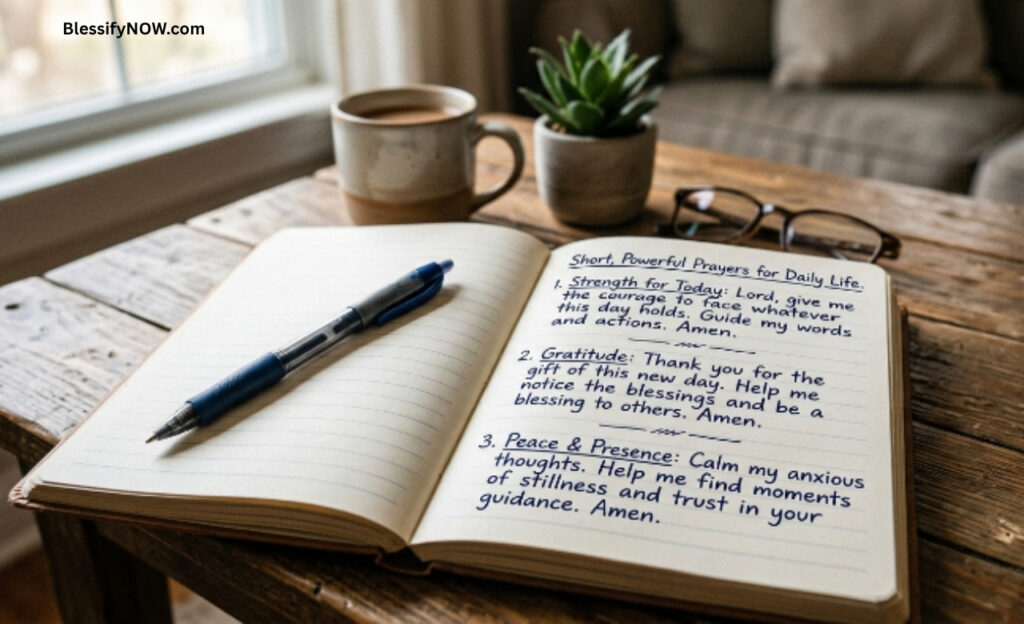 BlessifyNOW.com
Short, Powerful Prayers for Daily Life.
1. Strength for Today: Lord, give me
the courage to face whatever
this day holds. Guide my words
and actions. Amen.
2. Gratitude: Thank you for the
gift of this new day. Help me
notice the blessings and be a
blessing to others. Amen.
3. Peace & Presence: Calm my anxious
thoughts. Help me find moments
of stillness and trust in your
guidance. Amen.